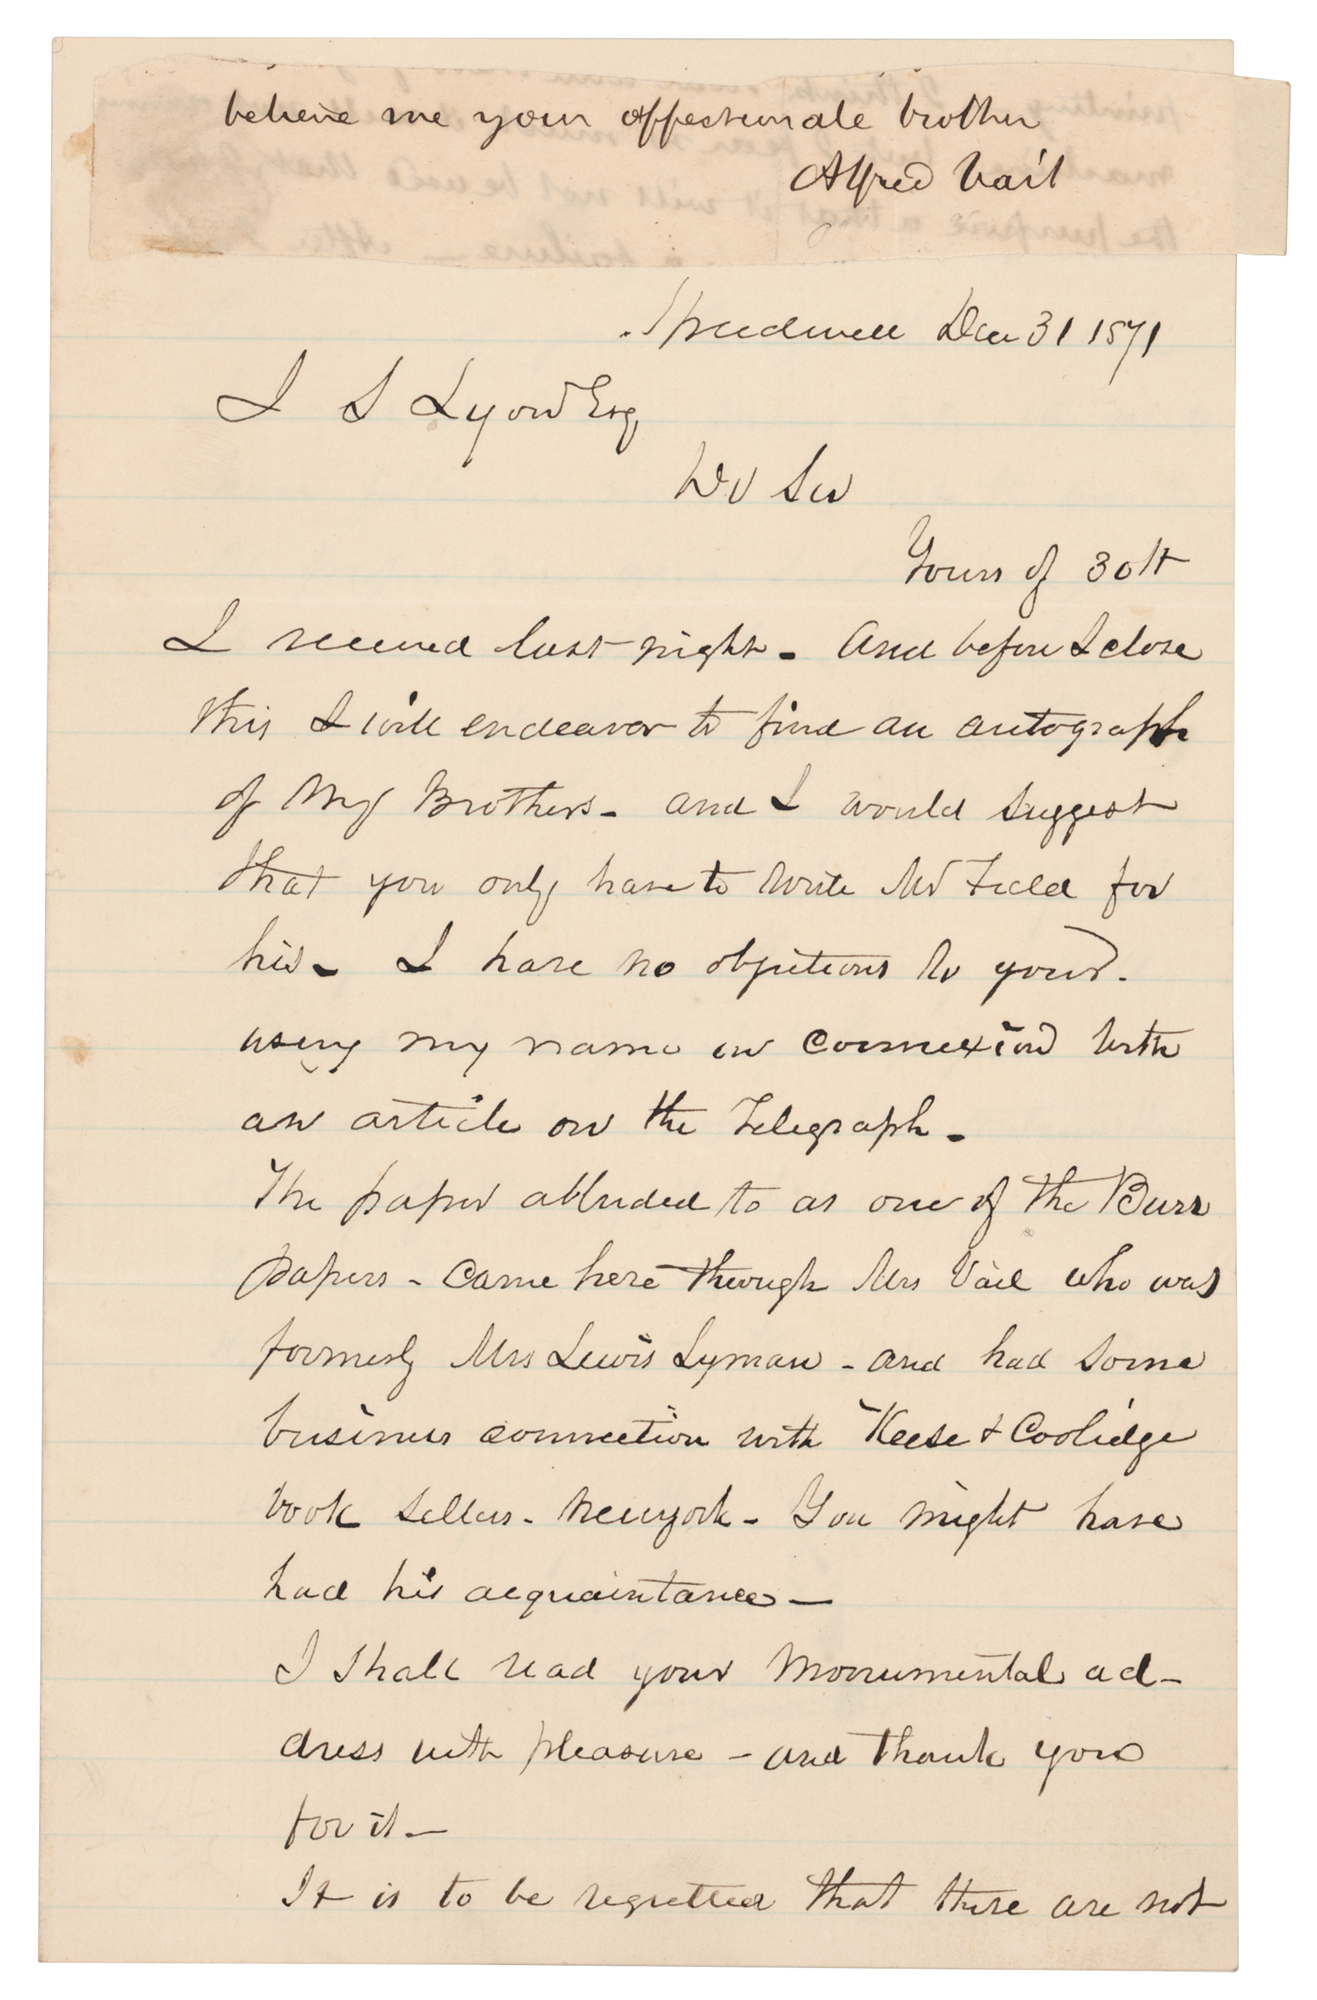 believe me your affectionate brother
Alfred Vail
Speedwell Dec 31 1871
I S Lyon Esq,
Dr Sir
Yours of 30th
I received last night - And before I close
this I will endeavor to find an autograph
of My Brothers - and I would suggest
that you only have to write Mr Field for
his - I have no objections to your
using my name in connexion with
an article on the Telegraph -
The paper alluded to as one of the Burr
papers - Came here through Mrs Vail who was
formerly Mrs Lewis Lyman - and had some
business connection with Keese & Coolidge
book sellers - Newyork - You might have
had his acquaintance -
I shall read your Monumental ad-
dress with pleasure - and thank you
for it -
It is to be regretted that there are not